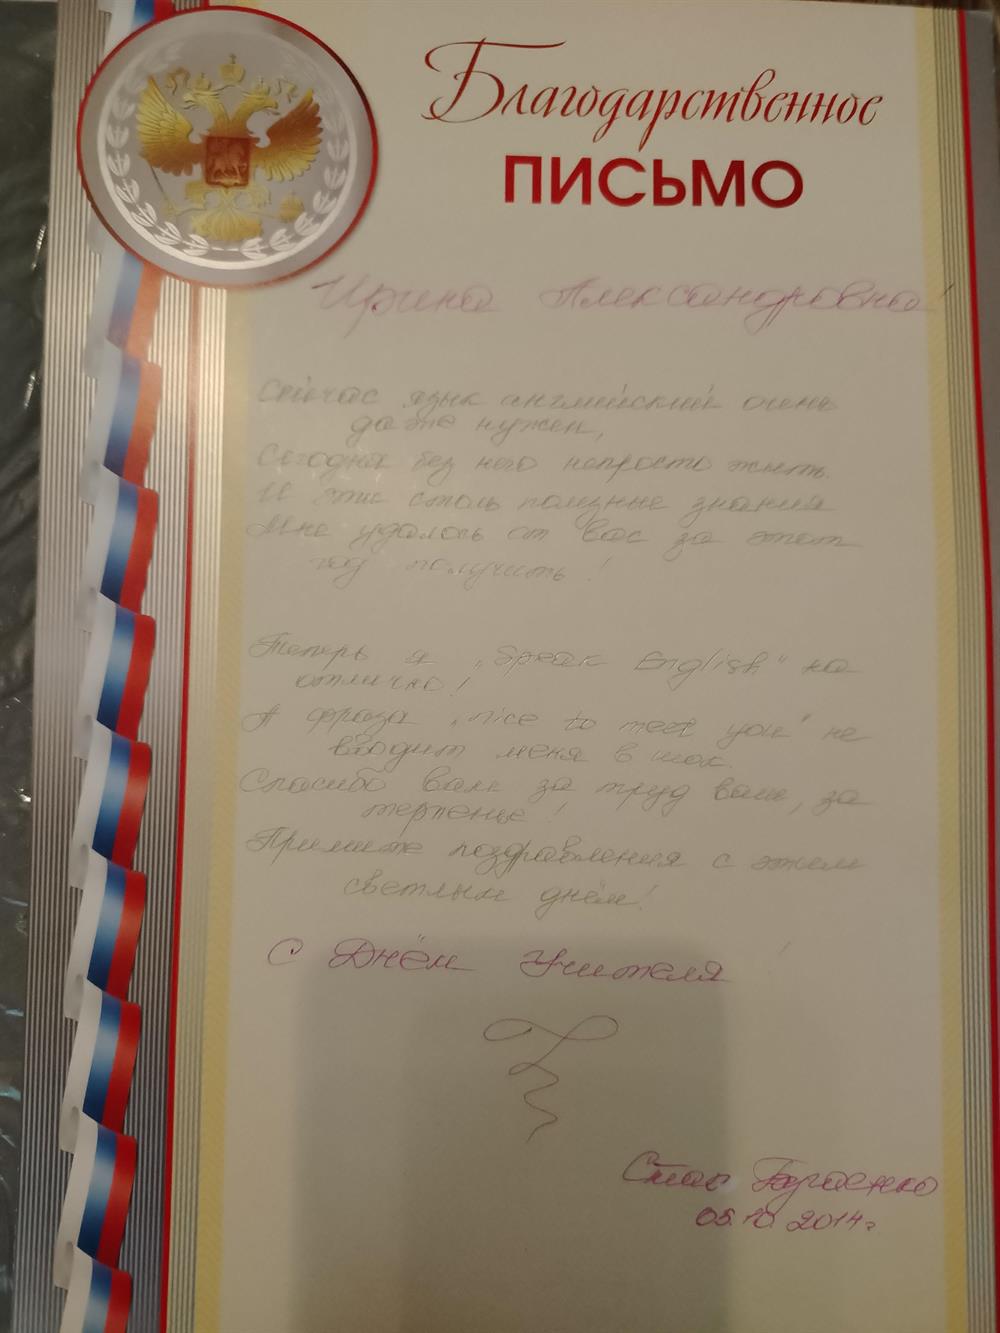 Благодарственное
ПИСЬМО
Ирина Александровна!
Сейчас язык английский очень
даже нужен,
Сегодня без него непросто жить.
И эти столь полезные знания
Мне удалось от вас за этот
год получить!
Теперь я "Speak English" на
отлично!
А фраза "nice to meet you" не
вводит меня в шок.
Спасибо вам за труд ваш, за
терпенье!
Примите поздравления с этим
светлым днём!
С Днём Учителя!
Стас
05.10.2014г